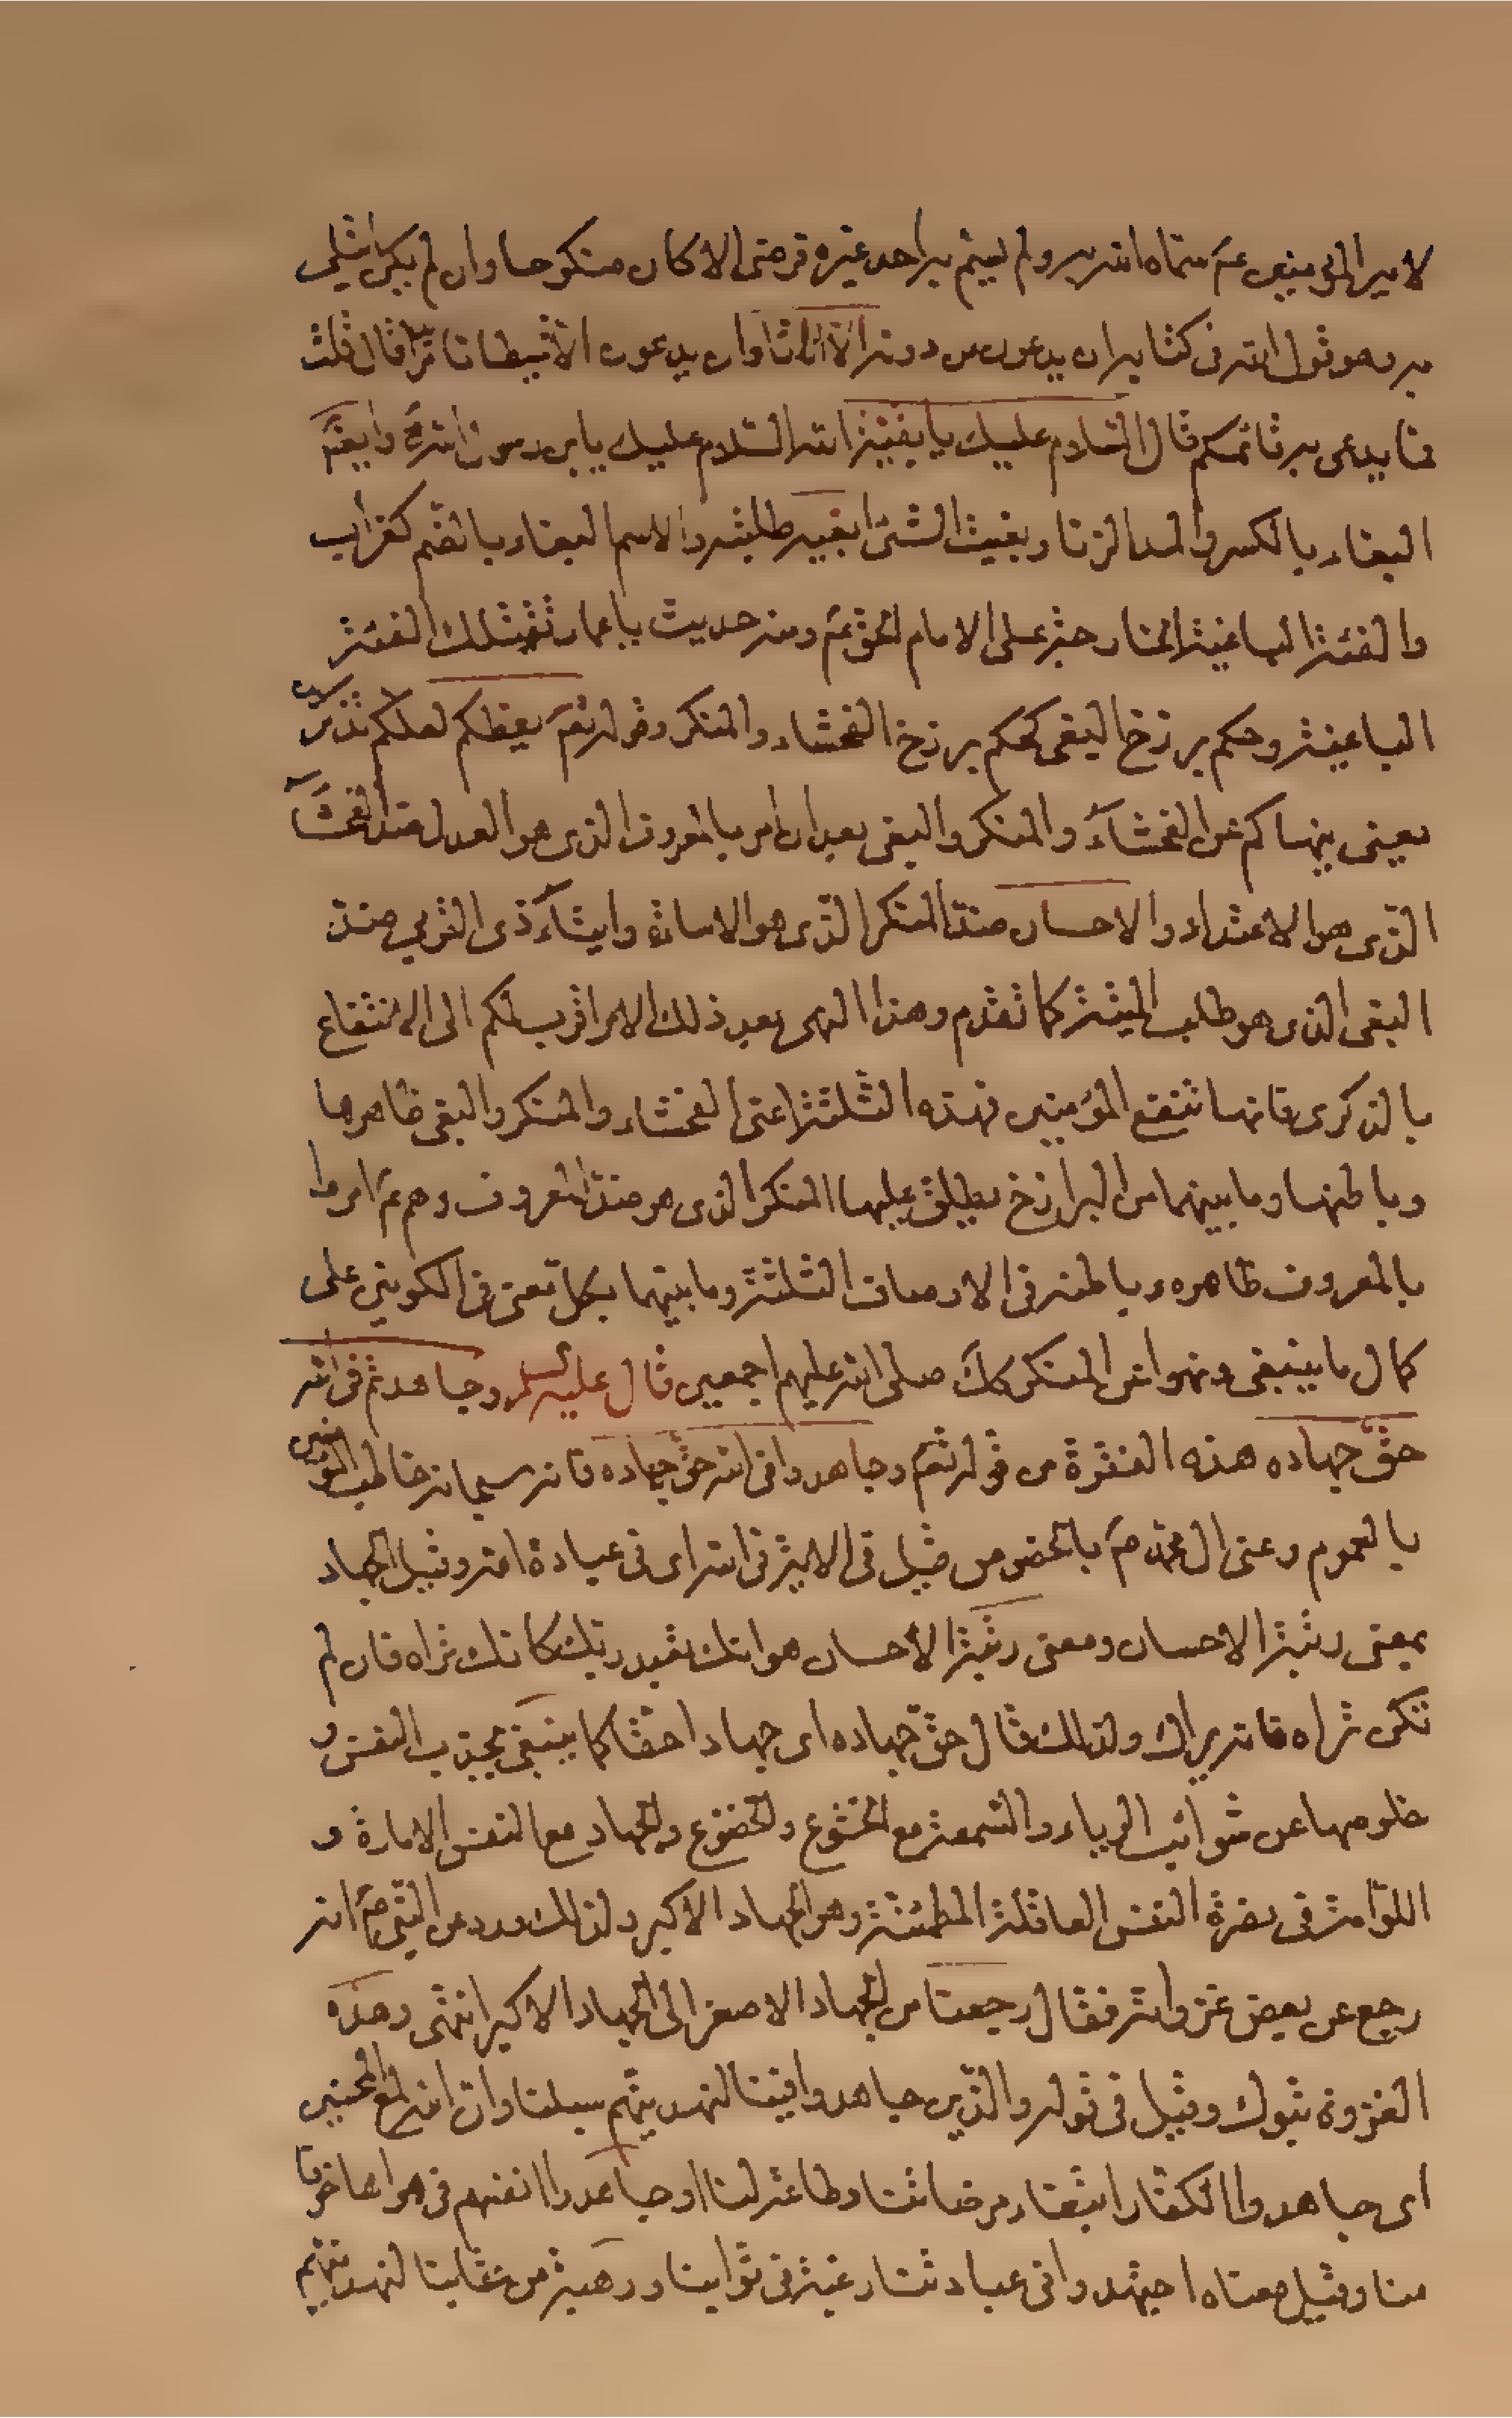 لامير المؤمنين عم سماه الله به ولم يسم به احد غيره فرضى الا كان منكوحا وان لم يكن ابتلى
به وهو قول الله فى كتابه ان يدعون من دونه الا اناثا وان يدعون الا شيطانا مريدا قال قلت
فما يدعى به قائمكم قال السلام عليك يا بقية الله السلام عليك يابن رسول الله ص وايضا
البغاء بالكسر والمد الزنا وبغيت الشئ ابغيه طلبته والاسم البغاء بالضم كغراب
والفئة الباغية الخارجة على الامام الحق عم ومنه حديث يا عمار تقتلك الفئة
الباغية وحكم برزخ البغى كحكم برزخ الفحشاء والمنكر وقوله تعم يعظكم لعلكم تذكرون
يعنى ينهاكم عن الفحشاء والمنكر والبغى بعد ان امر بالمعروف الذى هو العدل ضد الفحشاء
الذى هو الاعتداء والاحسان ضد المنكر الذى هو الاساءة وايتاء ذى القربى ضد
البغى الذى هو طلب الميتة كما تقدم وهذا النهى بعد ذلك الامر اقرب لكم الى الانتفاع
بالذكرى فانها تنفع المؤمنين فهذه الثلثة اعنى الفحشاء والمنكر والبغى ظاهرها
وباطنها وما بينهما من البرازخ يطلق عليها المنكر الذى هو ضد المعروف وهم عم امروا
بالمعروف ظاهره وباطنه فى الاوصاف الثلثة وما بينهما بكل معنى فى الكونين على
كمال ما ينبغى ونهوا عن المنكر كك صلى الله عليهم اجمعين قال عليه السلم وجاهدتم فى الله
حق جهاده هذه الفقرة من قوله تعم وجاهدوا فى الله حق جهاده فانه سبحانه خاطب المؤمنين
بالعموم وعنى ال محمد ص بالخصوص قيل فى الاية فى الله اى فى عبادة الله وقيل الجهاد
بمعنى رتبة الاحسان ومعنى رتبة الاحسان هو انك تعبد ربك كانك تراه فان لم
تكن تراه فانه يراك ولذلك قال حق جهاده اى جهادا حقا كما ينبغى بجذب النفس و
خلوصها عن شوائب الرياء والسمعة مع الخشوع والخضوع والجهاد مع النفس الامارة و
اللوامة فى نصرة النفس العاقلة المطمئنة وهو الجهاد الاكبر ولذلك ورد عن النبى ص انه
رجع عن بعض غزواته فقال رجعنا من الجهاد الاصغر الى الجهاد الاكبر انتهى وهذه
الغزوة تبوك وقيل فى قوله والذين جاهدوا فينا لنهدينهم سبلنا وان الله لمع المحسنين
اى جاهدوا الكفار ابتغاء مرضاتنا وطاعة لنا او جاهدوا انفسهم فى هواها خوفا
منا وقيل معناه اجتهدوا فى عبادتنا رغبة فى ثوابنا ورهبة من عقابنا لنهدينهم